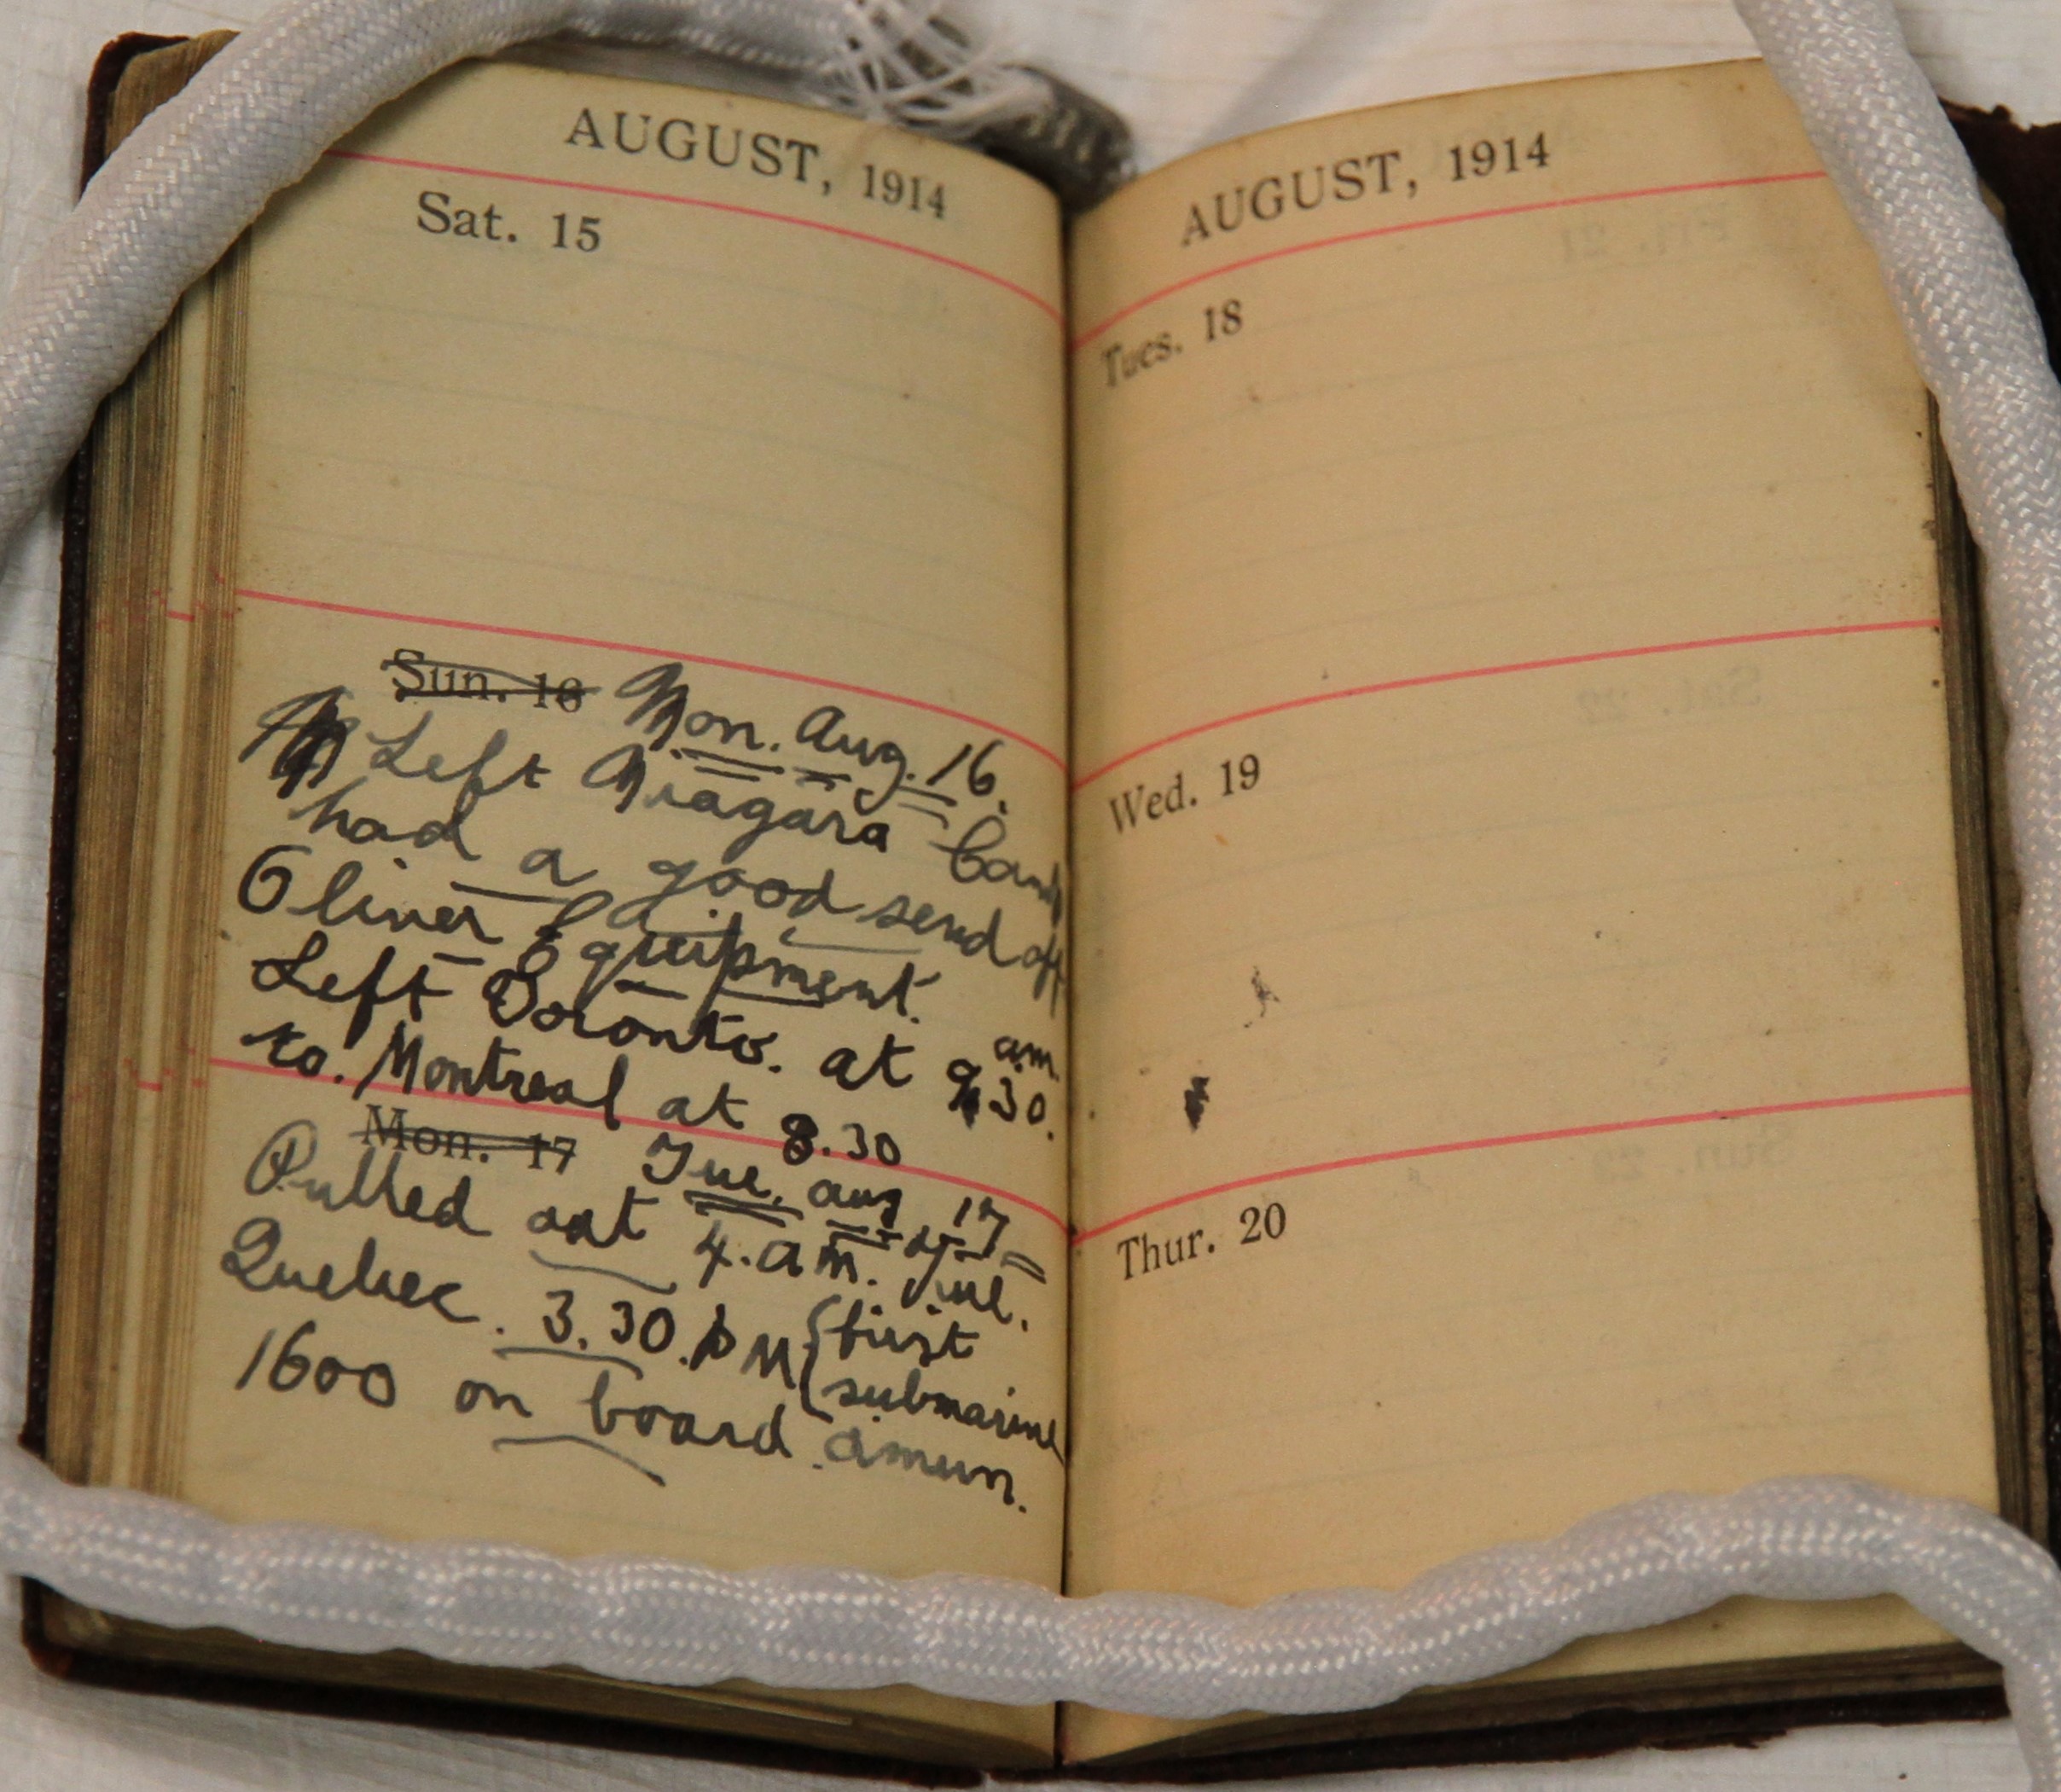 AUGUST, 1914
Sat. 15
Sun. 16 Mon. Aug. 16.
Left Niagara Camp
had a good send off
Oliver Equipment.
Left Toronto. at 9 30. am.
to. Montreal at 8.30
Mon. 17 Tue. Aug 17
Pulled out 4. a m. Tue.
Quebec. 3.30. P M { first
submarine
1600 on board.
AUGUST, 1914
Tues. 18
Wed. 19
Thur. 20